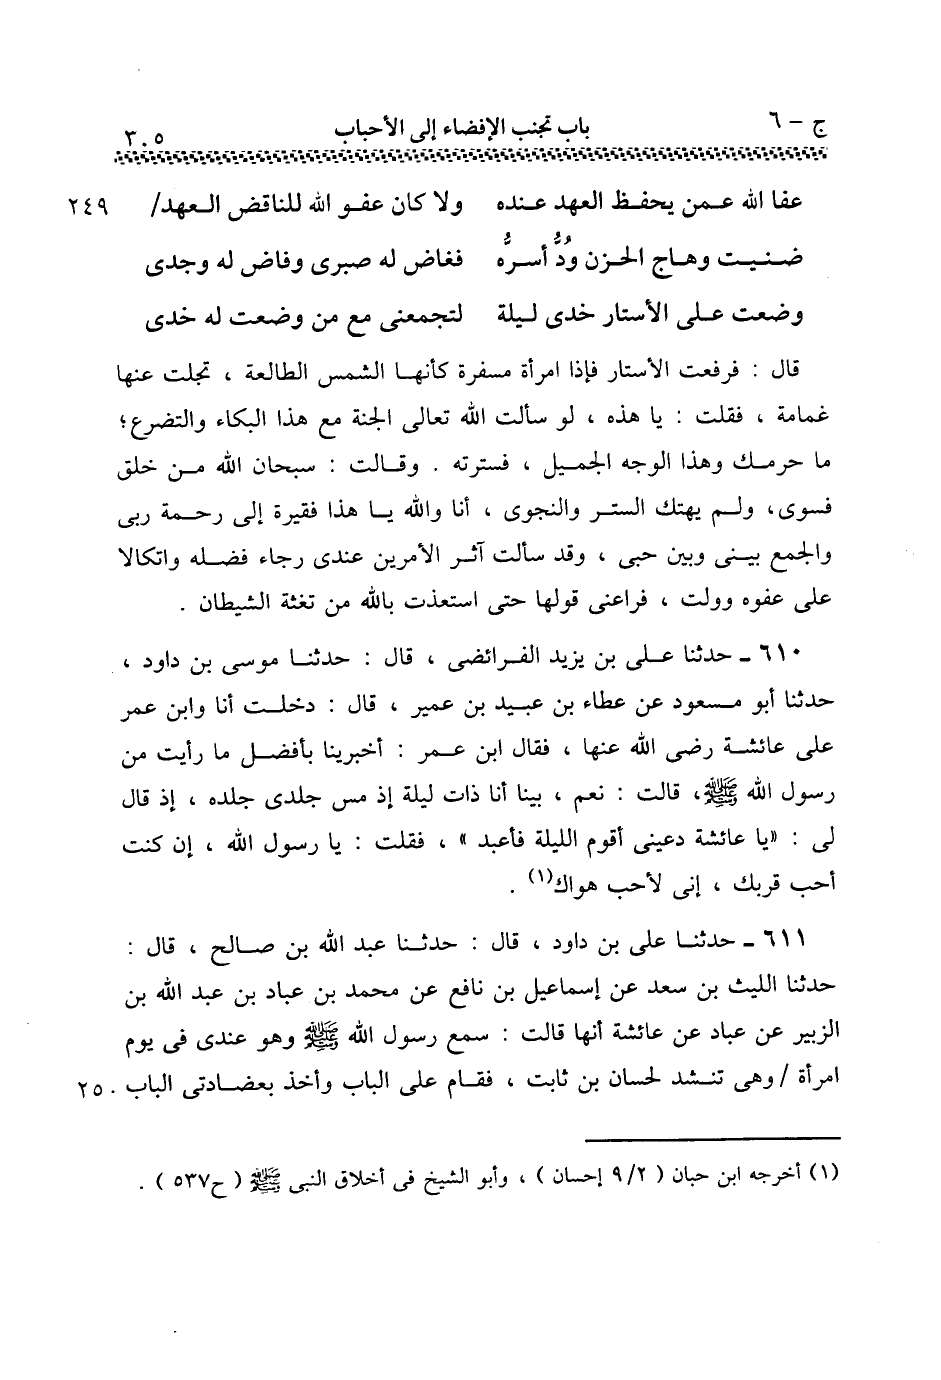 ج – ٦ باب تجنب الإفضاء إلى الأحباب ٣٠٥
عفا الله عمن يحفظ العهد عنده ولا كان عفو الله للناقض العهد/ ٢٤٩
ضنيت وهاج الحزن ودٌّ أسرُّه فغاض له صبرى وفاض له وجدى
وضعت على الأستار خدى ليلة لتجمعنى مع من وضعت له خدى
قال : فرفعت الأستار فإذا امرأة مسفرة كأنها الشمس الطالعة ، تجلت عنها
غمامة ، فقلت : يا هذه ، لو سألت الله تعالى الجنة مع هذا البكاء والتضرع؛
ما حرمك وهذا الوجه الجميل ، فسترته . وقالت : سبحان الله من خلق
فسوى، ولم يهتك الستر والنجوى ، أنا والله يا هذا فقيرة إلى رحمة ربى
والجمع بينى وبين حبى ، وقد سألت آثر الأمرين عندى رجاء فضله واتكالا
على عفوه وولت ، فراعنى قولها حتى استعذت بالله من تغثة الشيطان .
٦١٠ ـ حدثنا على بن يزيد الفرائضى ، قال : حدثنا موسى بن داود ،
حدثنا أبو مسعود عن عطاء بن عبيد بن عمير ، قال : دخلت أنا وابن عمر
على عائشة رضى الله عنها ، فقال ابن عمر : أخبرينا بأفضل ما رأيت من
رسول الله ﷺ، قالت : نعم ، بينا أنا ذات ليلة إذ مس جلدى جلده ، إذ قال
لى : «يا عائشة دعينى أقوم الليلة فأعبد » ، فقلت : يا رسول الله ، إن كنت
أحب قربك ، إنى لأحب هواك(١) .
٦١١ ـ حدثنا على بن داود ، قال : حدثنا عبد الله بن صالح ، قال :
حدثنا الليث بن سعد عن إسماعيل بن نافع عن محمد بن عباد بن عبد الله بن
الزبير عن عباد عن عائشة أنها قالت : سمع رسول الله ﷺ وهو عندى فى يوم
امرأة / وهى تنشد لحسان بن ثابت ، فقام على الباب وأخذ بعضادتى الباب . ٢٥
(١) أخرجه ابن حبان ( ٩/٢ إحسان ) ، وأبو الشيخ فى أخلاق النبى ﷺ ( ح٥٣٧ ) .